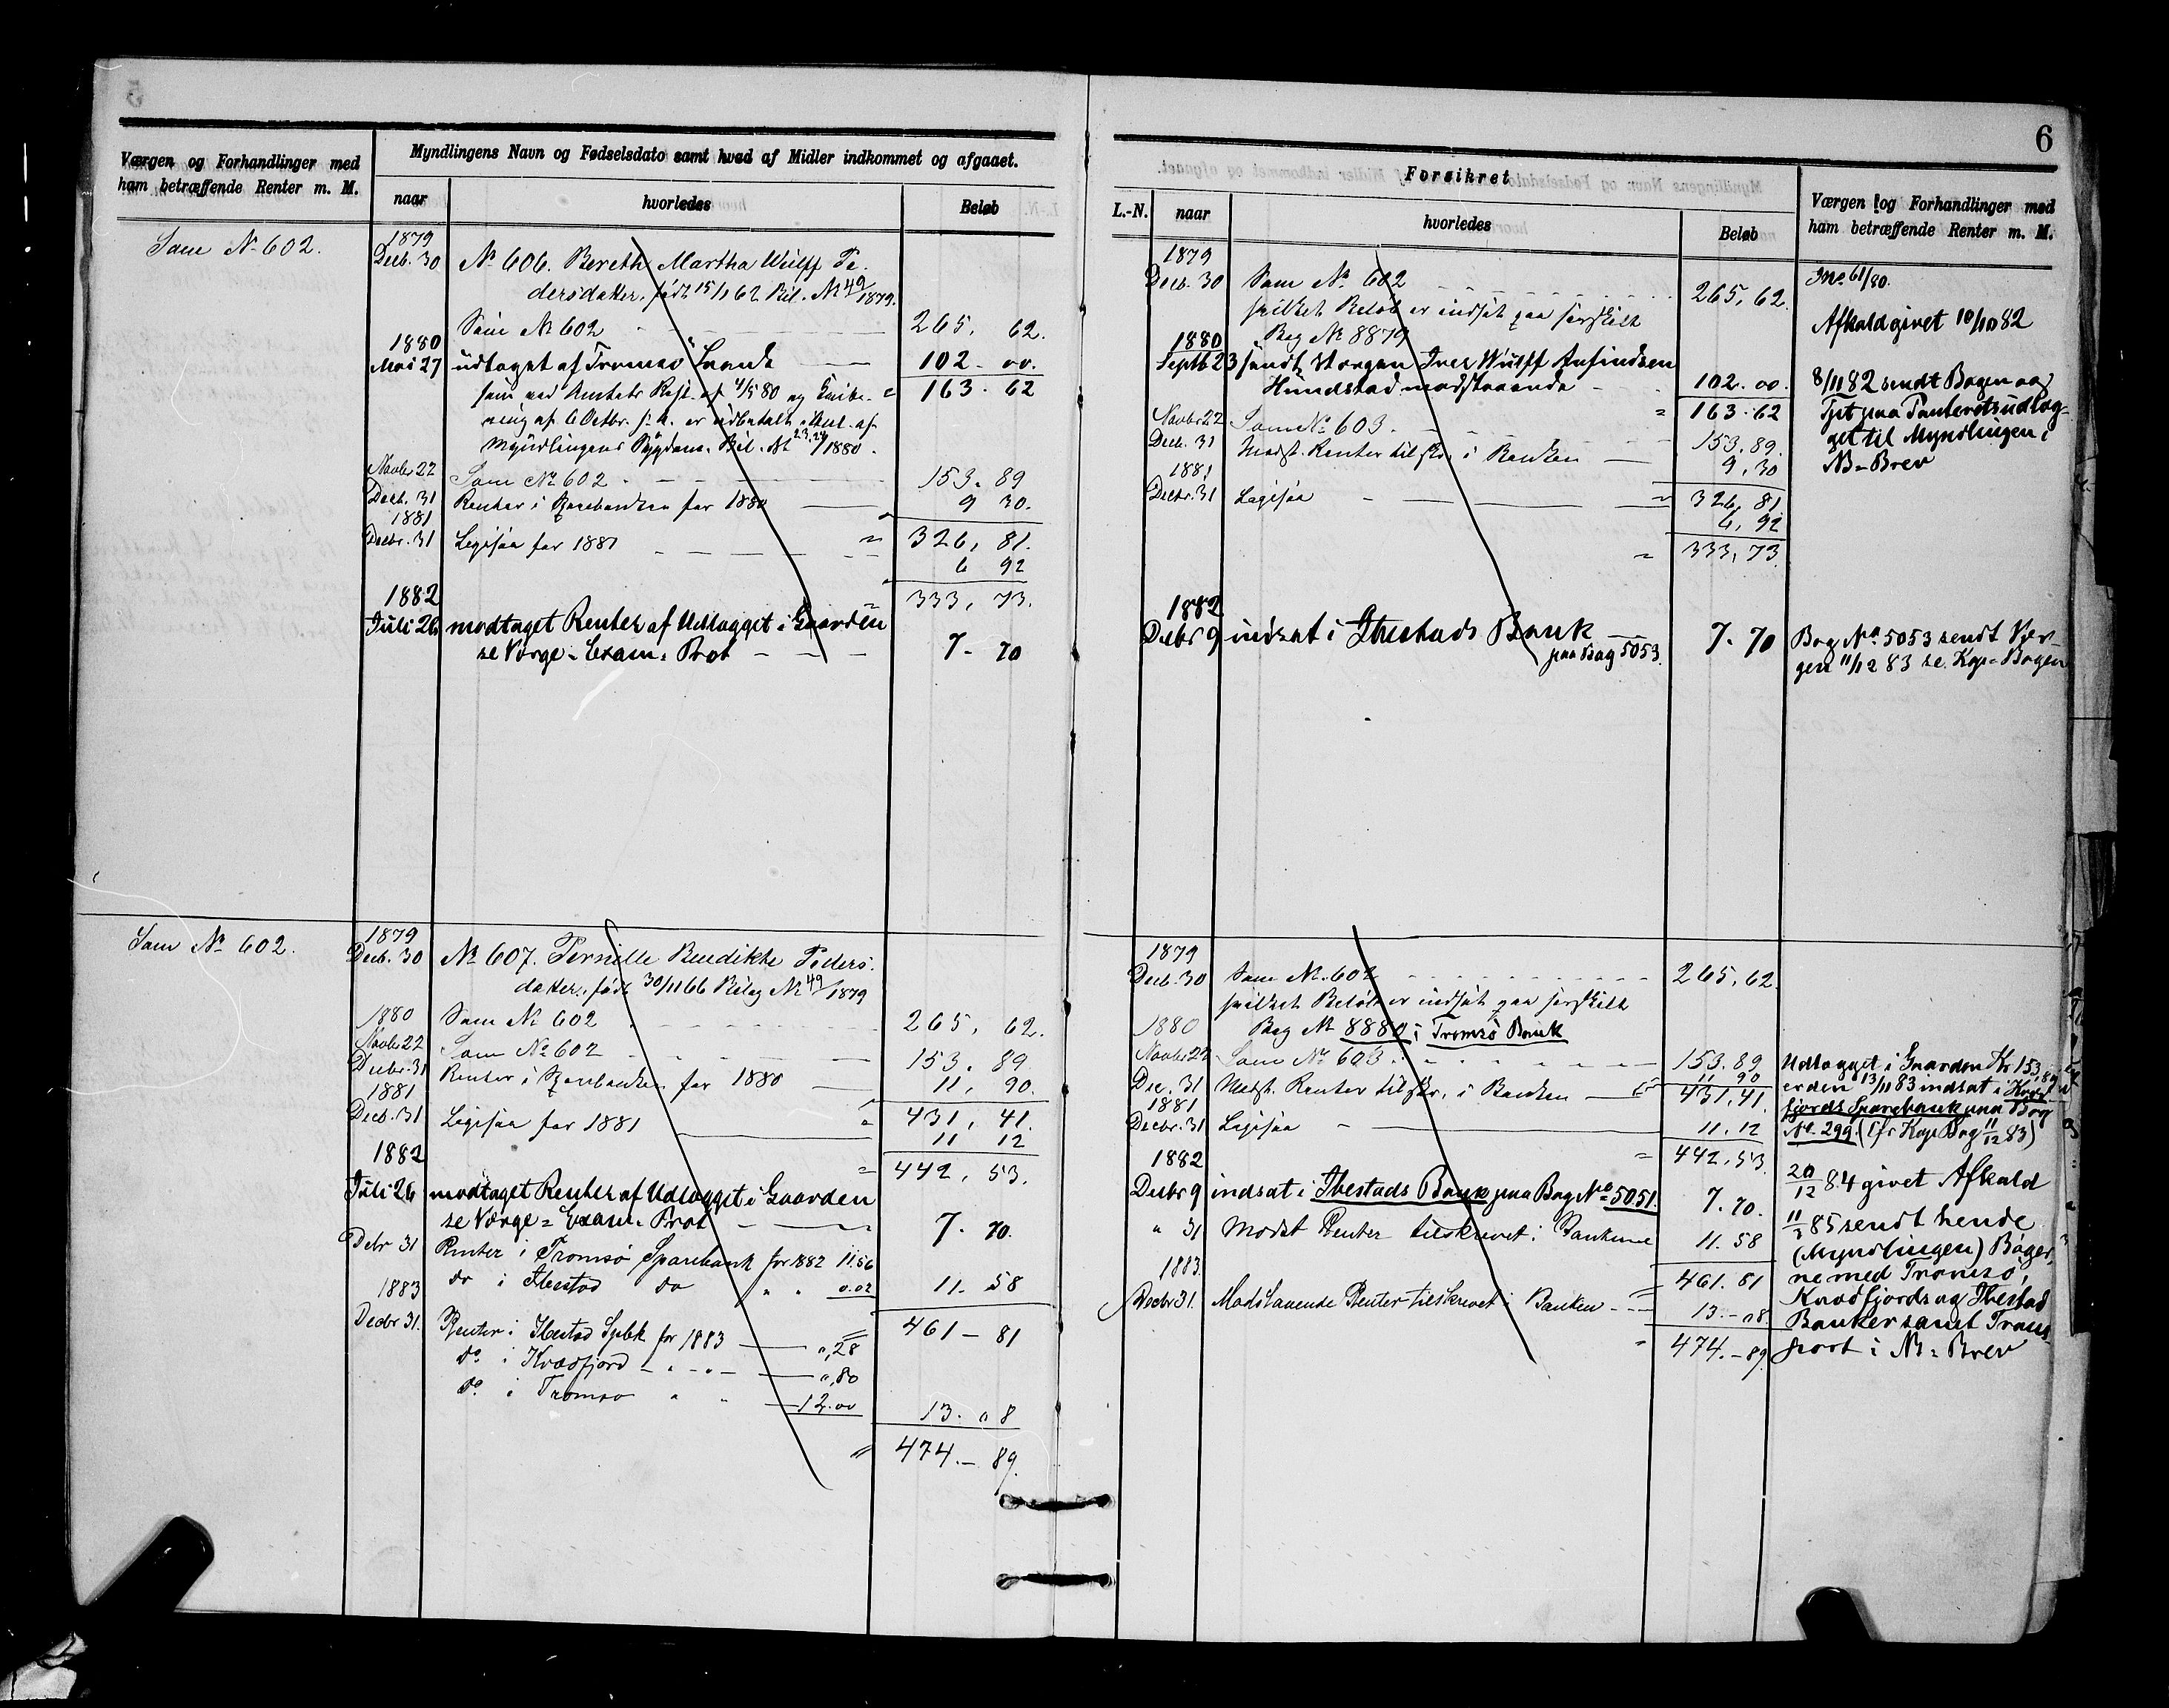 6
Værgen og Forhandlinger med
ham betræffende Renter m. M.
Myndlingens Navn og Fødselsdato samt hvad af Midler indkommet og afgaaet.
naar
hvorledes
Beløb
Som No 602.
1879
Decb. 30 No 606. Bereth Martha Wulff Pe-
dersdatter, født 15/1 62 Bil. No 49/1879.
Som No 602 265, 62.
1880
Mai 27 udtaget af Tromsø Bank 102 - 00.
163. 62
som ved Amtets Resl. af 4/5 80 og
ning af 6 Octbr. s. A. er udbetalt
Myndlingens Sygdom. Bil. No 23.24/1880.
Novbr 22 Som No 602 153. 89
Decb. 31 Renter i Sparebanken for 1880 9 30.
1881
326, 81.
Decbr. 31 Ligesaa for 1881 6 92
333, 73.
1882
Juli 26 modtaget Renter af Udlægget i Gaarden
se Værge-Exam. Prot 7 - 70
Som No 602.
1879
Decb. 30 No 607. Pernille Bendikte Peders-
datter, født 30/11 66 Bilag No 49/1879
Som No 602 265, 62.
1880
Novbr 22 Som No 602 153. 89
Decbr 31 Renter i Sparebanken for 1880 11, 90.
1881
431, 41.
Decb. 31 Ligesaa for 1881 11 12
442, 53.
1882
Juli 26 modtaget Renter af Udlægget i Gaarden
se Værge-Exam. Prot 7. 70.
Debr 31 Renter i Tromsø Sparebank for 1882 11.56
do i Ibestad do " " 0.02 11. 58
461 - 81
1883
Decbr 31. Renter i Ibestad Spbk for 1883 ",28
do i Kvædfjord - " - ",80
do i Tromsø " " 12.00
13. "8
474. - 89.
Forsikret
L.-N.
naar
hvorledes
Beløb
Værgen og Forhandlinger med
ham betræffende Renter m. M.
1879
Decb. 30 Som No 602 265, 62.
hvilket Beløb er indsat paa særskilt
Bog No 8879
1880
Septb 23 sendt Værgen Iver Wulff Anfindsen
Hundstad modstaaende 102. 00.
163. 62
Novbr 22 Som No 603. 153. 89.
Decb. 31 Modst. Renter tilskr. i Banken 9, 30
1881
326, 81.
Decbr. 31 Ligesaa 6, 92
333, 73.
1882
Decbr 9 indsat i Ibestads Bank
paa Bog 5053. 7. 70
Jno 61/80.
Afkald givet 10/10 82
8/11 82 sendt Bogen og
Tgt paa Panteretsudlæg-
get til Myndlingen i
NB-Brev
Bog No 5053 sendt Vær-
gen 11/12 83 se. Kop-Bogen
1879
Decb. 30 Som No 602 265, 62.
hvilket Beløb er indsat paa særskilt
Bog No 8880 i Tromsø Bank
1880
Novbr 22 Som No 603. 153. 89
Dec. 31 Modst. Renter tilskr. i Banken 11 90
1881
431, 41.
Decbr. 31 Ligesaa 11. 12
442, 53.
1882
Decbr 9 indsat i Ibestads Bank paa Bog No 5051. 7. 70.
" 31 Modst Renter tilskrevet i Bankerne 11. 58
461. 81
1883.
Decbr 31. Modstaaende Renter tilskrevet i Banken 13. - "8.
474. - 89.
Udlægget i Gaarden Kr 153,89
er den 13/11 83 indsat i Kvæd-
fjords Sparebank paa Bog
No. 299. (cfr Kop Bog 11/12 83)
20/12 84 givet Afkald
11/2 85 sendt hende
(Myndlingen) Bøger-
ne med Tromsø,
Kvædfjords og Ibestad
Banker samt Trans-
port i NB-Brev